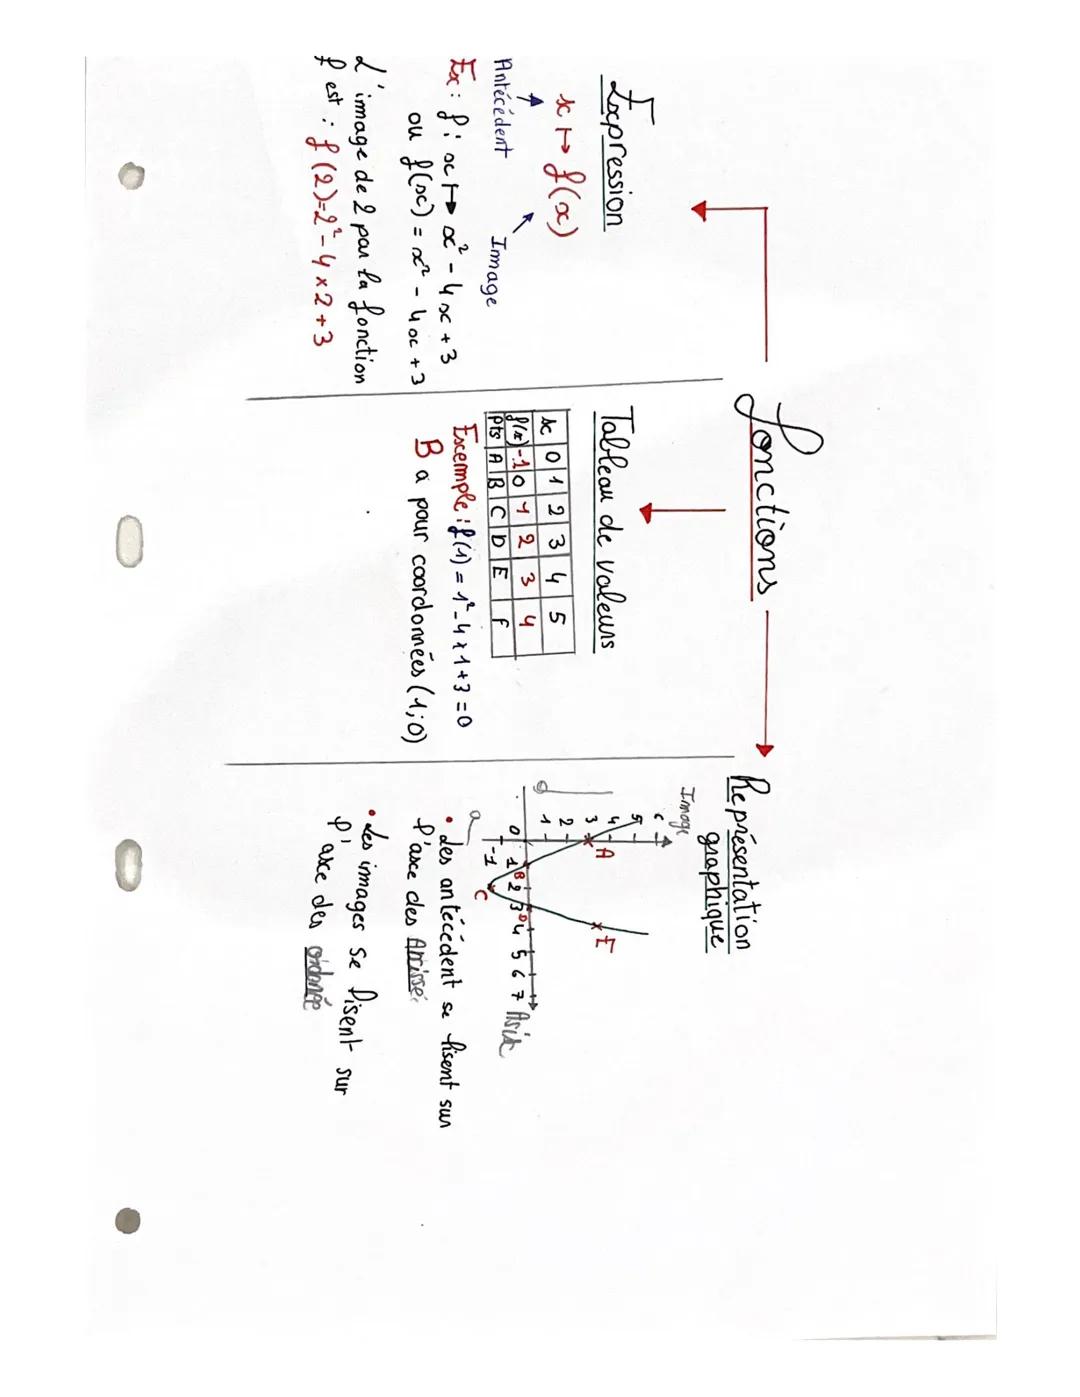 Fonctions
Expression
x ↦ f(x)
Antécédent
Image
Ex : f : x ↦ x² - 4x + 3
ou f(x) = x² - 4x + 3
L'image de 2 par la fonction
f est : f(2)=2² - 4 × 2 + 3
Tableau de valeurs
x 0 1 2 3 4 5
f(x) -1 0 1 2 3 4
Pts A B C D E F
Excemple : f(1) = 1² - 4 × 1 + 3 = 0
B a pour coordonnées (1;0)
Représentation
graphique
Image
5
4
3 A
2
1
0 1 B 2 3 D 4 5 6 7
-1 C
E
• Les antécédent se lisent sur
l'axe des
• Les images se lisent sur
l'axe des ordonnée